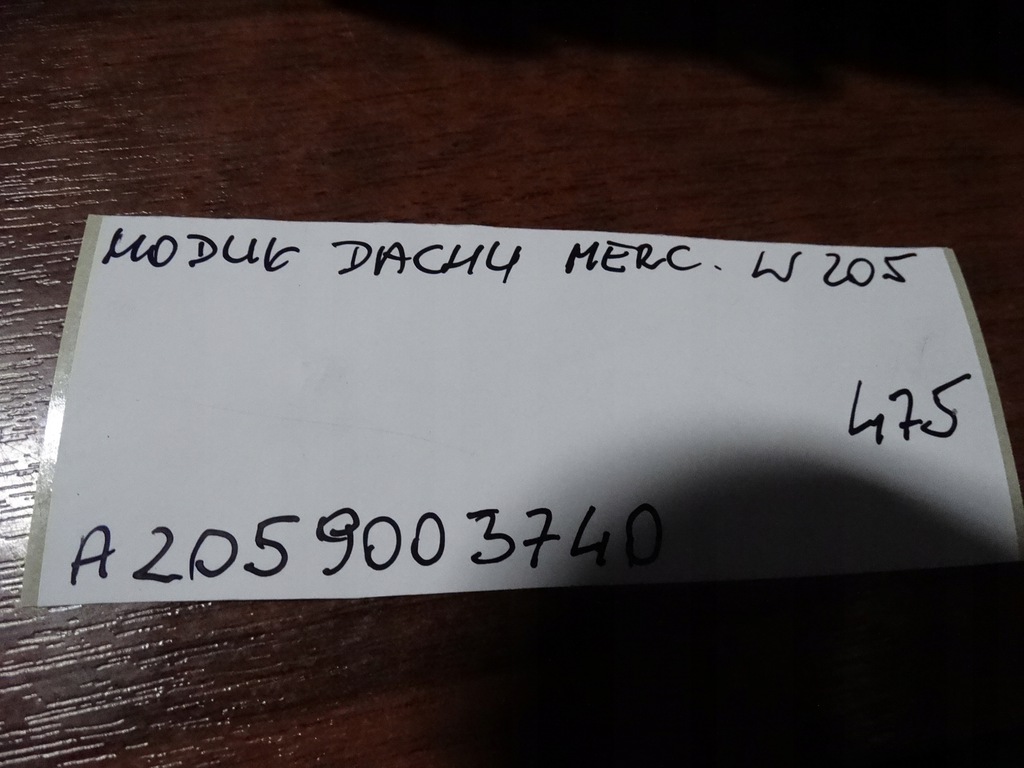 MODUŁ DACHU MERC. W205
475
A2059003740